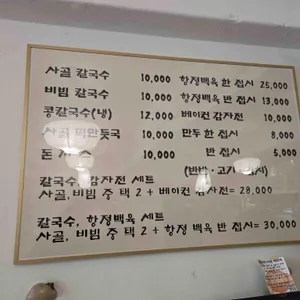 사골 칼국수 10,000 항정백육 한 접시 25,000
비빔 칼국수 10,000 항정백육 반 접시 13,000
콩칼국수(냉) 12,000 베이컨 감자전 10,000
사골 떡만둣국 10,000 만두 한 접시 8,000
돈 10,000 반 접시 5,000
(반반·고기
칼국수, 감자전 세트
사골, 비빔 중 택 2 + 베이컨 감자전= 28,000
칼국수, 항정백육 세트
사골, 비빔 중 택 2 + 항정 백육 반 접시= 30,000